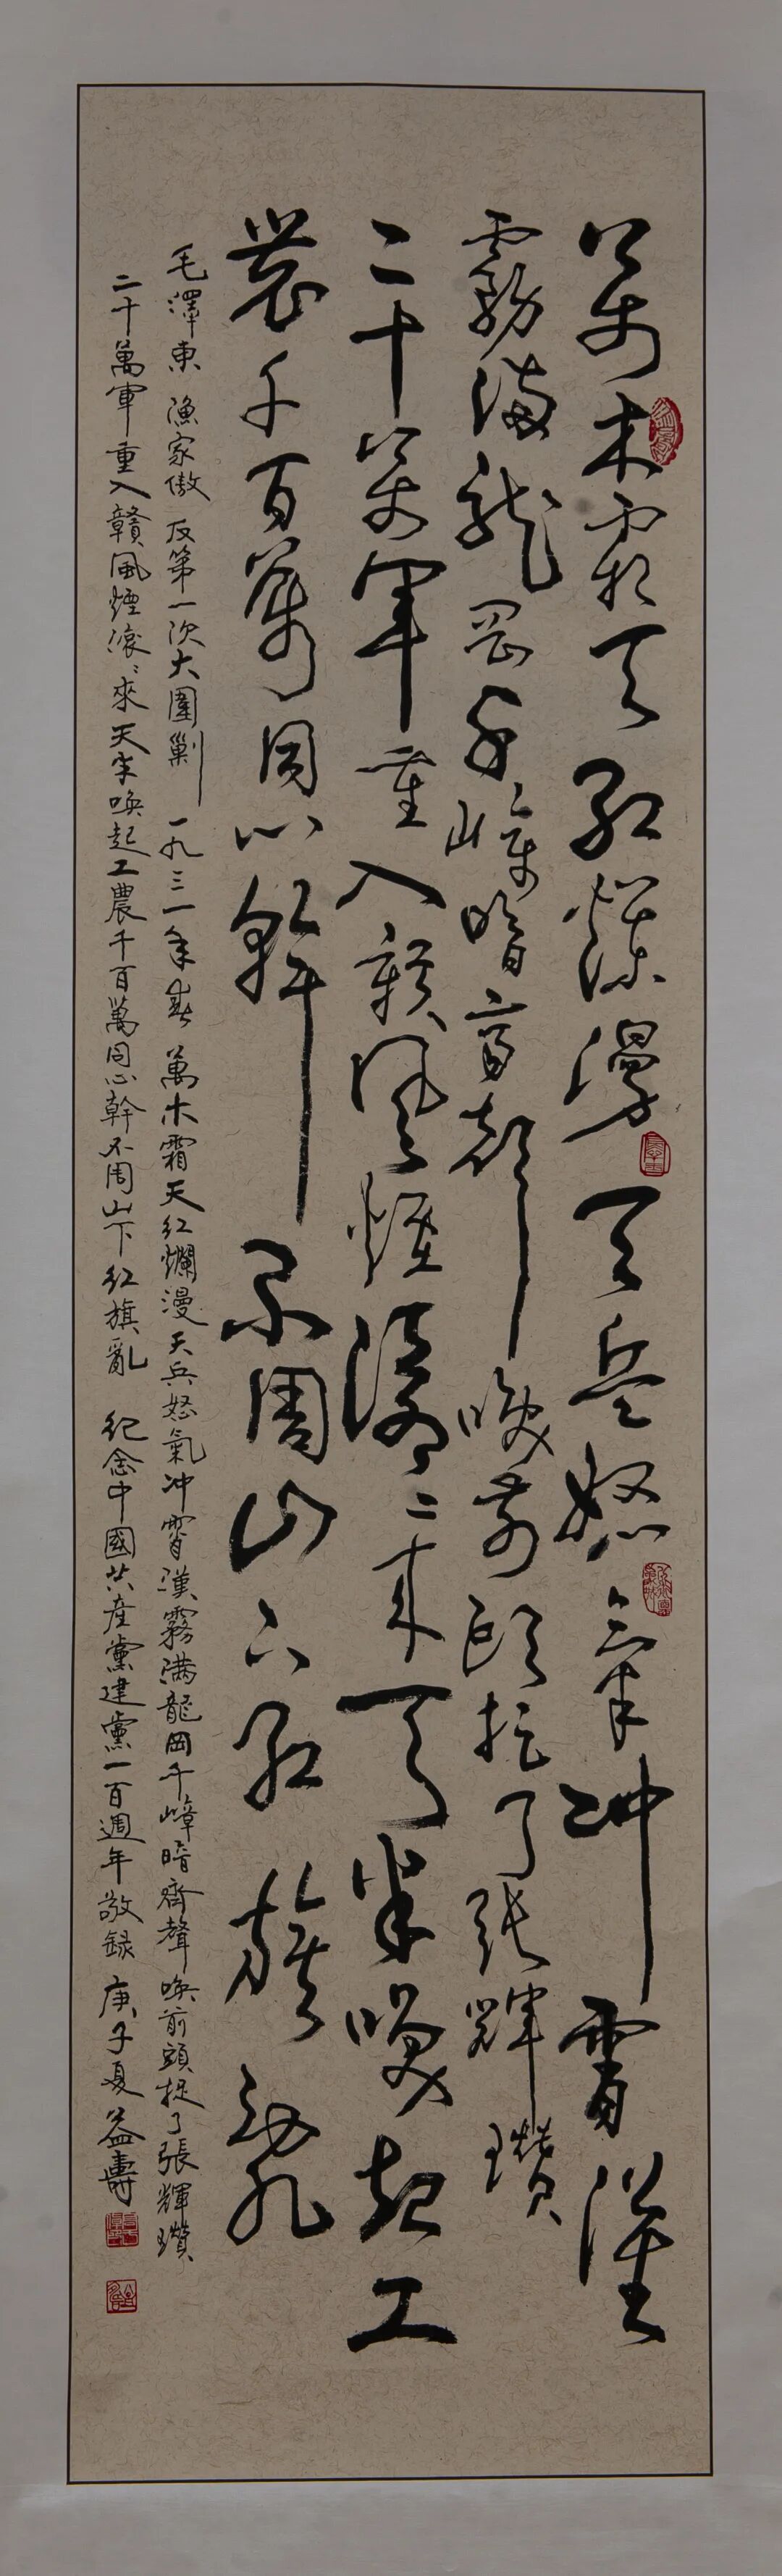 萬木霜天紅爛漫天兵怒氣冲霄漢
霧滿龍岡千嶂暗齊聲唤前頭捉了張輝瓚
二十萬軍重入贛風煙滚二來天半唤起工
農千百萬同心幹不周山下紅旗亂
毛澤東 漁家傲 反第一次大圍剿 一九三一年春 萬木霜天紅爛漫天兵怒氣冲霄漢霧满龍岡千嶂暗齊聲唤前頭捉了張輝瓚
二十萬軍重入贛風煙滚〻來天半唤起工農千百萬同心幹不周山下紅旗亂 纪念中國共產黨建黨一百週年敬録 庚子夏 益壽